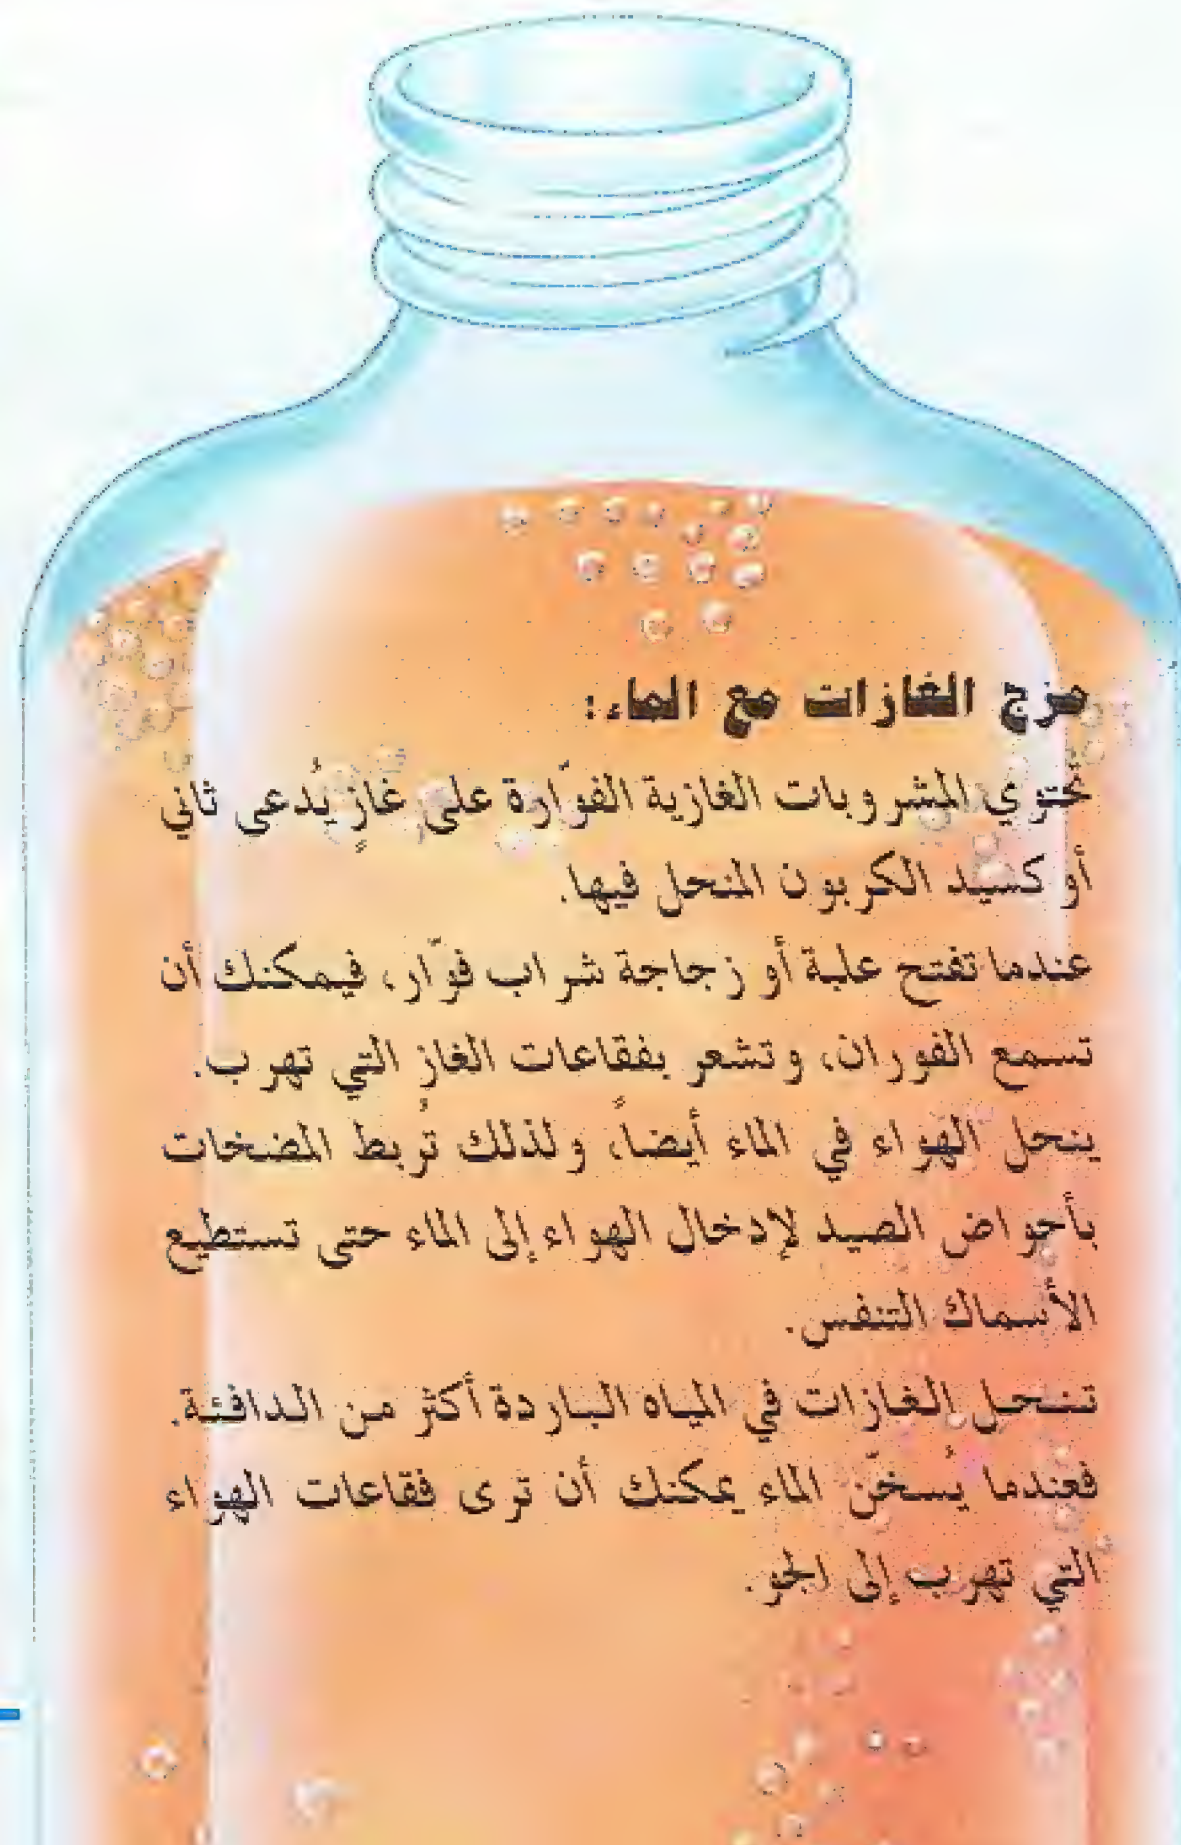 مزج الغازات مع الماء:
تحتوي المشروبات الغازية الفوّارة على غازٍ يُدعى ثاني
أوكسيد الكربون المنحل فيها.
عندما تفتح علبة أو زجاجة شراب فوّار، فيمكنك أن
تسمع الفوران، وتشعر بفقاعات الغاز التي تهرب.
ينحل الهواء في الماء أيضاً، ولذلك تُربط المضخات
بأحواض الصيد لإدخال الهواء إلى الماء حتى تستطيع
الأسماك التنفس.
تنحل الغازات في المياه الباردة أكثر من الدافئة.
فعندما يُسخّن الماء يمكنك أن ترى فقاعات الهواء
التي تهرب إلى الجو.